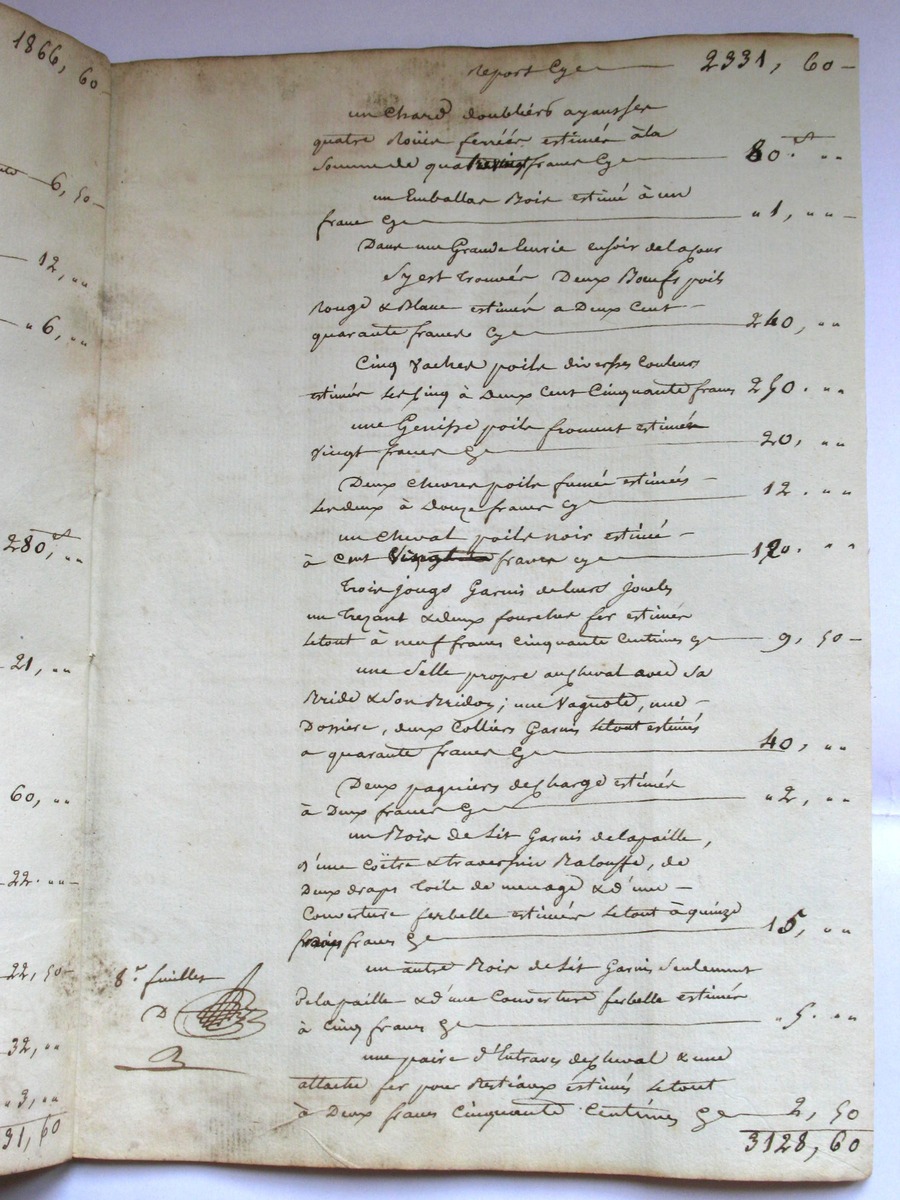 1866, 60
6, 50
12, ""
" 6, ""
280, ""
21, ""
60, ""
22. ""
22, 50
32, ""
" 3, ""
31, 60
report Cy 2331, 60
un Chard doubliers
quatre Roües ferrées estimée à la
Somme de quatrevingt francs Cy 80. ""
un Emballas Bois estimé à un
franc Cy " 1, ""
Dans une Grande Eurie
Sy est trouvées Deux Bœufs poils
Rouge & Blanc estimés a Deux Cent
quarante francs Cy 240, ""
Cinq Vaches poils diverses Couleurs
estimées Les Cinq à Deux Cent Cinquante francs 250. ""
une Genisse poils froment estimée
Vingt francs Cy 20, ""
Deux Chevres poils fumé estimées
Les deux à Douze francs Cy 12. ""
un Cheval poils noir estimé
à Cent Vingt francs Cy 120. ""
trois jougs Garnis de leurs joucles
un trezant & deux fourches fer estimés
Le tout à neuf francs Cinquante Centimes Cy 9, 50
une Selle propre au Cheval avec Sa
Bride & Son Bridon; une Vagnote, une
Dossiere, deux Colliers Garnis Le tout estimés
a quarante francs Cy 40, ""
Deux pagniers de Charge estimés
à Deux francs Cy " 2, ""
un Bois de Lit Garnis de la paille,
d'une Coïtre & traversin Balouffe, de
Deux draps toile de menage & d'une
Couverture ferbelle estimés Le tout à quinze
francs Cy 15, ""
un autre Bois de Lit Garnis Seulement
de la paille & d'une Couverture ferbelle estimée
à Cinq francs Cy " 5. ""
une paire d'Entraves de Cheval & une
attache fer pour Bestiaux estimés Le tout
à Deux francs Cinquante Centimes Cy 2, 50
3128, 60
8.e feuillet
D